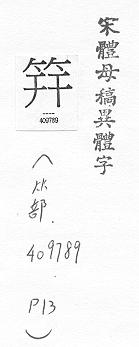 宋體母稿異體字
筓
409789
(竹部.
409789.
P13)